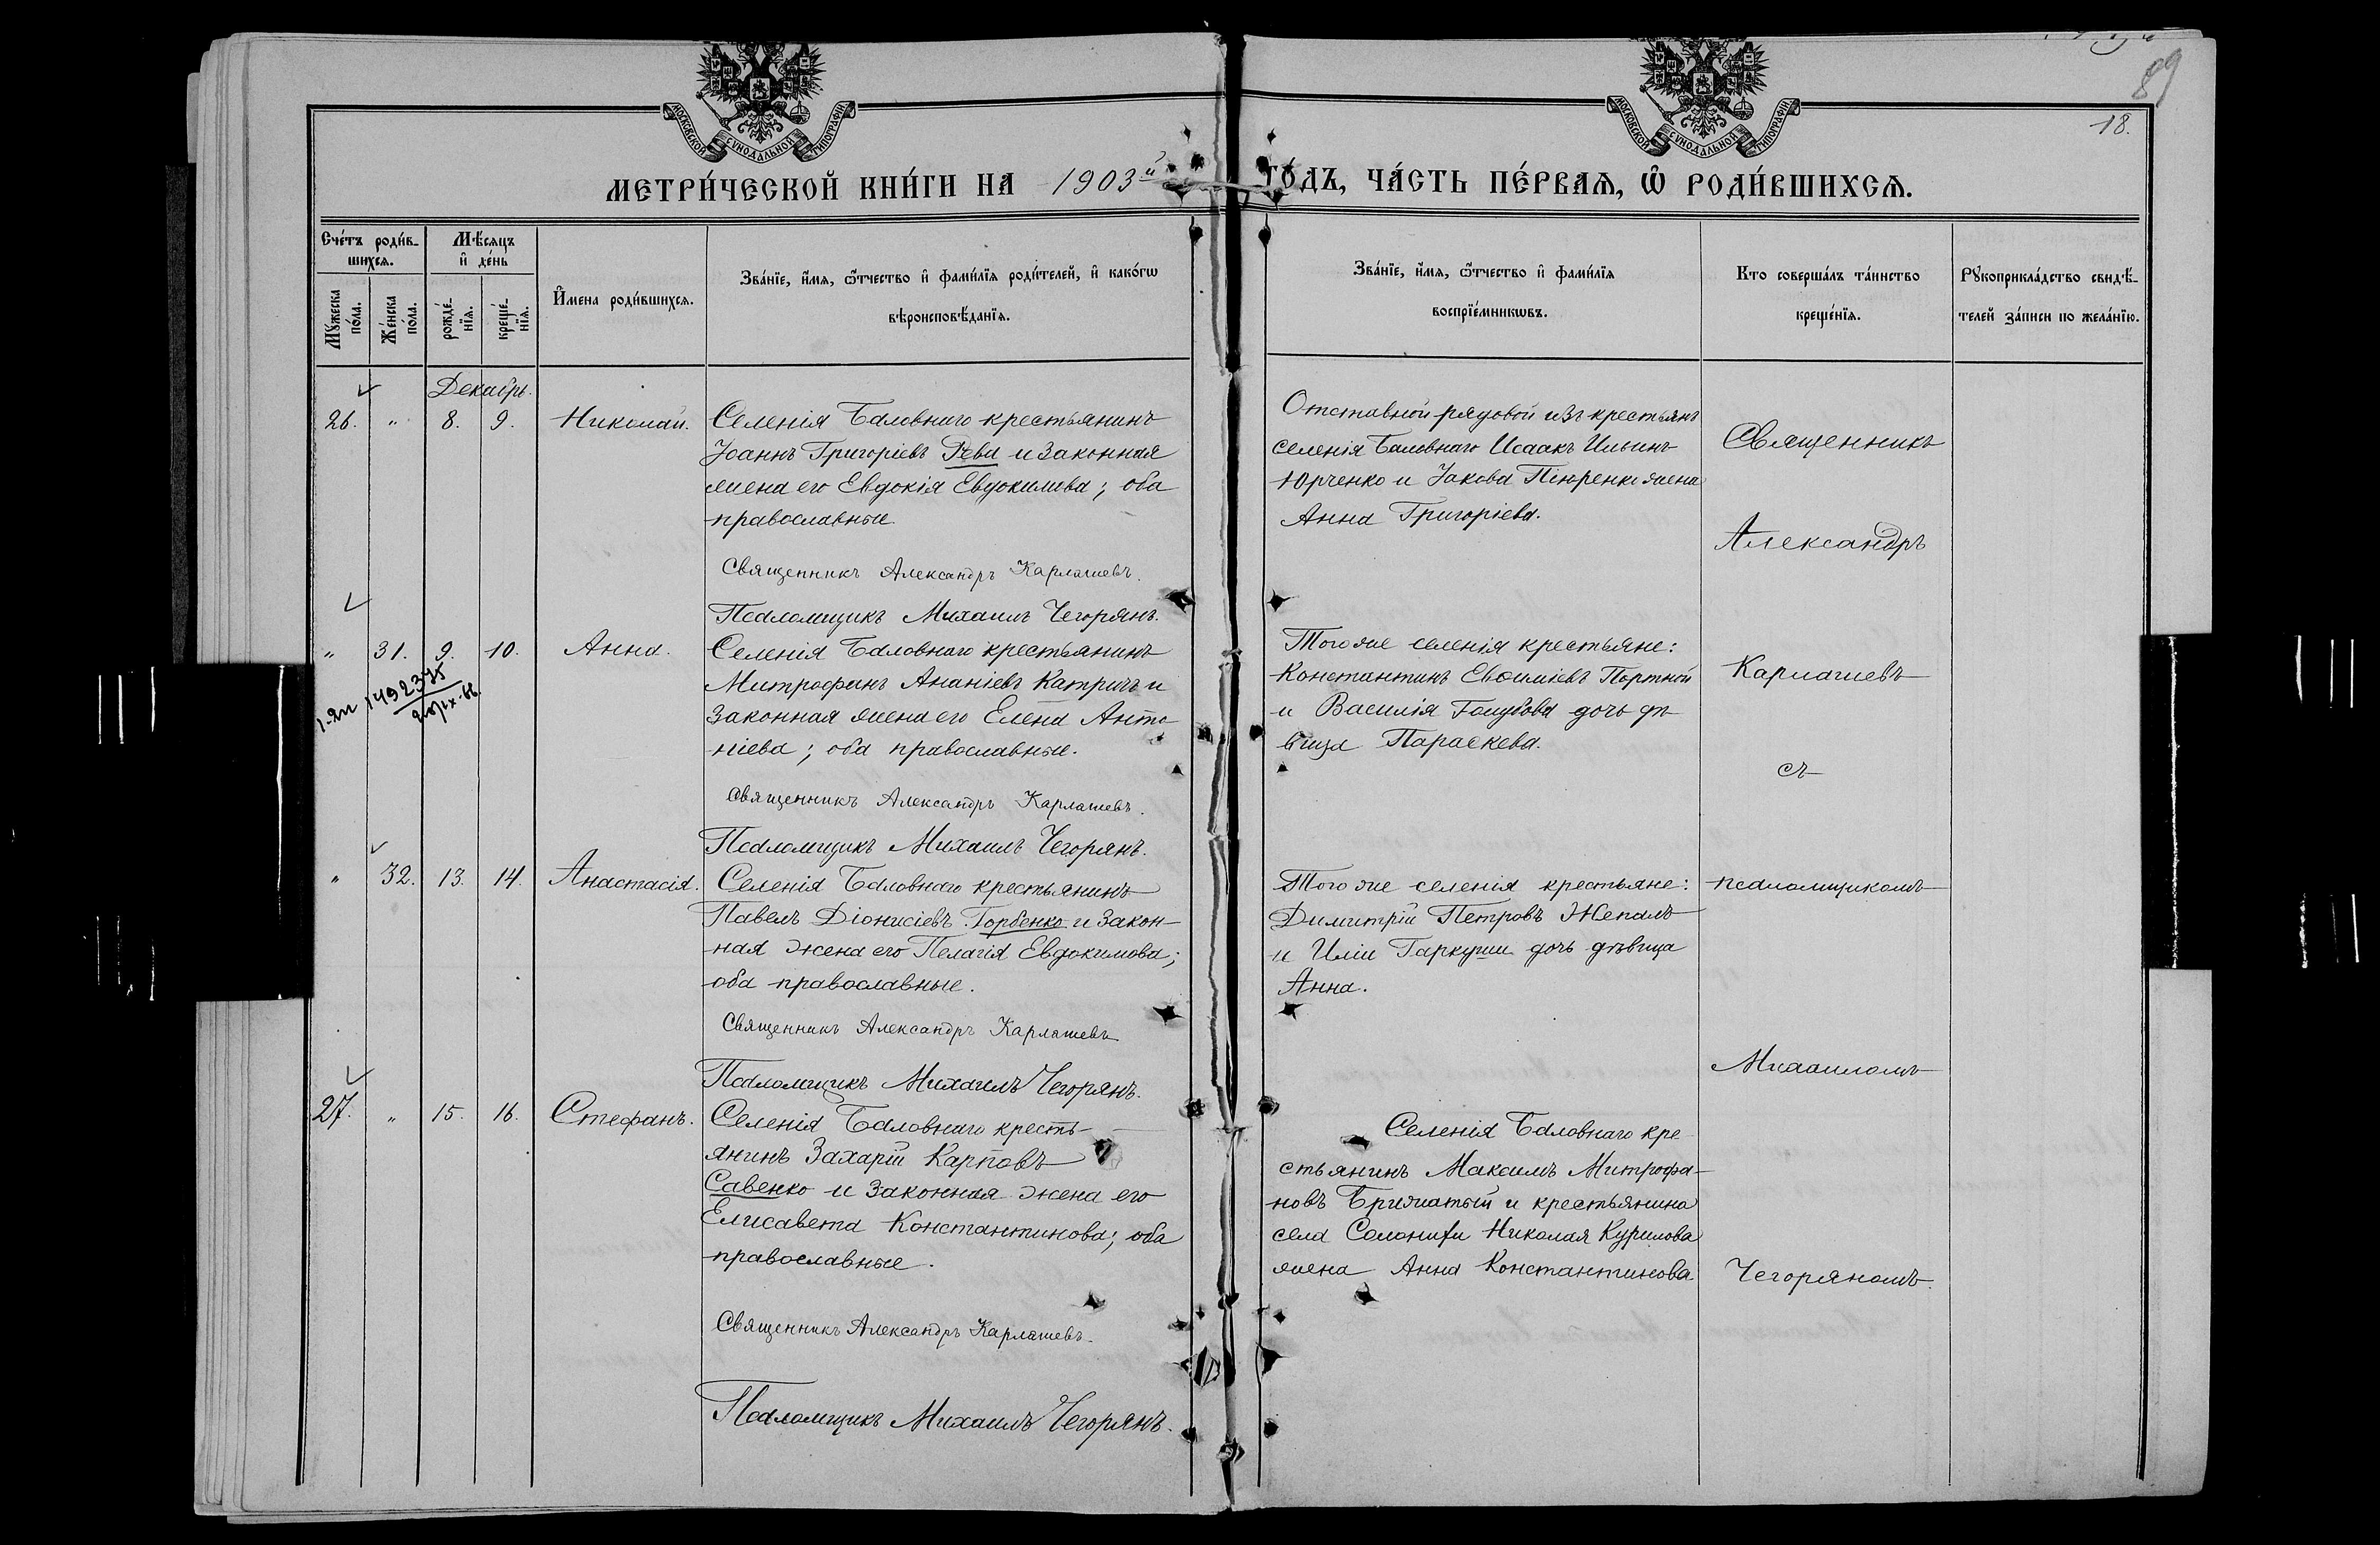 89
18.
МОСКОВСКОЙ СѴНОДАЛЬНОЙ ТИПОГРАФІИ
МОСКОВСКОЙ СѴНОДАЛЬНОЙ ТИПОГРАФІИ
МЕТРИ́ЧЕСКОЙ КНИ́ГИ НА 1903й ГО́ДЪ, ЧА́СТЬ ПЕ́РВАѦ, Ѡ҆ РОДИ́ВШИХСѦ.
Сче́тъ роди́в-
шихсѧ.
Мѣ́сяцъ
и҆ де́нь
Мꙋ́жеска
по́ла.
Же́нска
по́ла.
рожде́-
нїѧ.
креще́-
нїѧ.
И҆мена роди́вшихсѧ.
Зва́нїе, и҆́мѧ, ѻ҆́тчество и҆ фами́лїѧ роди́телей, и҆ како́гѡ
вѣроисповѣ́данїѧ.
Зва́нїе, и҆́мѧ, ѻ҆́тчество и҆ фами́лїѧ
воспрїе́мникѡвъ.
Кто соверша́лъ та́инство
креще́нїѧ.
Рꙋкоприкла́дство свидѣ́-
телей за́писи по жела́нїю.
Декабрь.
26. " 8. 9. Николай.
Селенія Баловнаго крестьянинъ
Іоаннъ Григоріевъ Рева и законная
жена его Евдокія Евдокимова; оба
православные.
Священникъ Александръ Карлашевъ.
Псаломщикъ Михаилъ Чегорянъ.
Отставной рядовой изъ крестьянъ
селенія Баловнаго Исаакъ Ильинъ
Юрченко и Іакова Пюренко жена
Анна Григоріева.
" 31. 9. 10. Анна.
Селенія Баловнаго крестьянинъ
Митрофанъ Ананіевъ Катричъ и
законная жена его Елена Анто-
ніева; оба православные.
Священникъ Александръ Карлашевъ.
Псаломщикъ Михаилъ Чегорянъ.
Того же селенія крестьяне:
Константинъ Евѳиміевъ Портной
и Василія Голубова дочь дѣ-
вица Параскева.
1492375
" 32. 13. 14. Анастасія.
Селенія Баловнаго крестьянинъ
Павелъ Діонисіевъ Горбенко и закон-
ная жена его Пелагія Евдокимова;
оба православные.
Священникъ Александръ Карлашевъ
Псаломщикъ Михаилъ Чегорянъ.
Того же селенія крестьяне:
Димитрій Петровъ Жепалъ
и Иліи Гаркуши дочь дѣвица
Анна.
27. " 15. 16. Стефанъ.
Селенія Баловнаго кресть-
янинъ Захарій Карповъ
Савенко и законная жена его
Елисавета Константинова; оба
православные.
Священникъ Александръ Карлашевъ.
Псаломщикъ Михаилъ Чегорянъ.
Селенія Баловнаго кре-
стьянинъ Максимъ Митрофа-
новъ и крестьянина
села Николая Курилова
жена Анна Константинова
Священникъ
Александръ
Карлашевъ
съ
псаломщикомъ
Михаиломъ
Чегоряномъ.